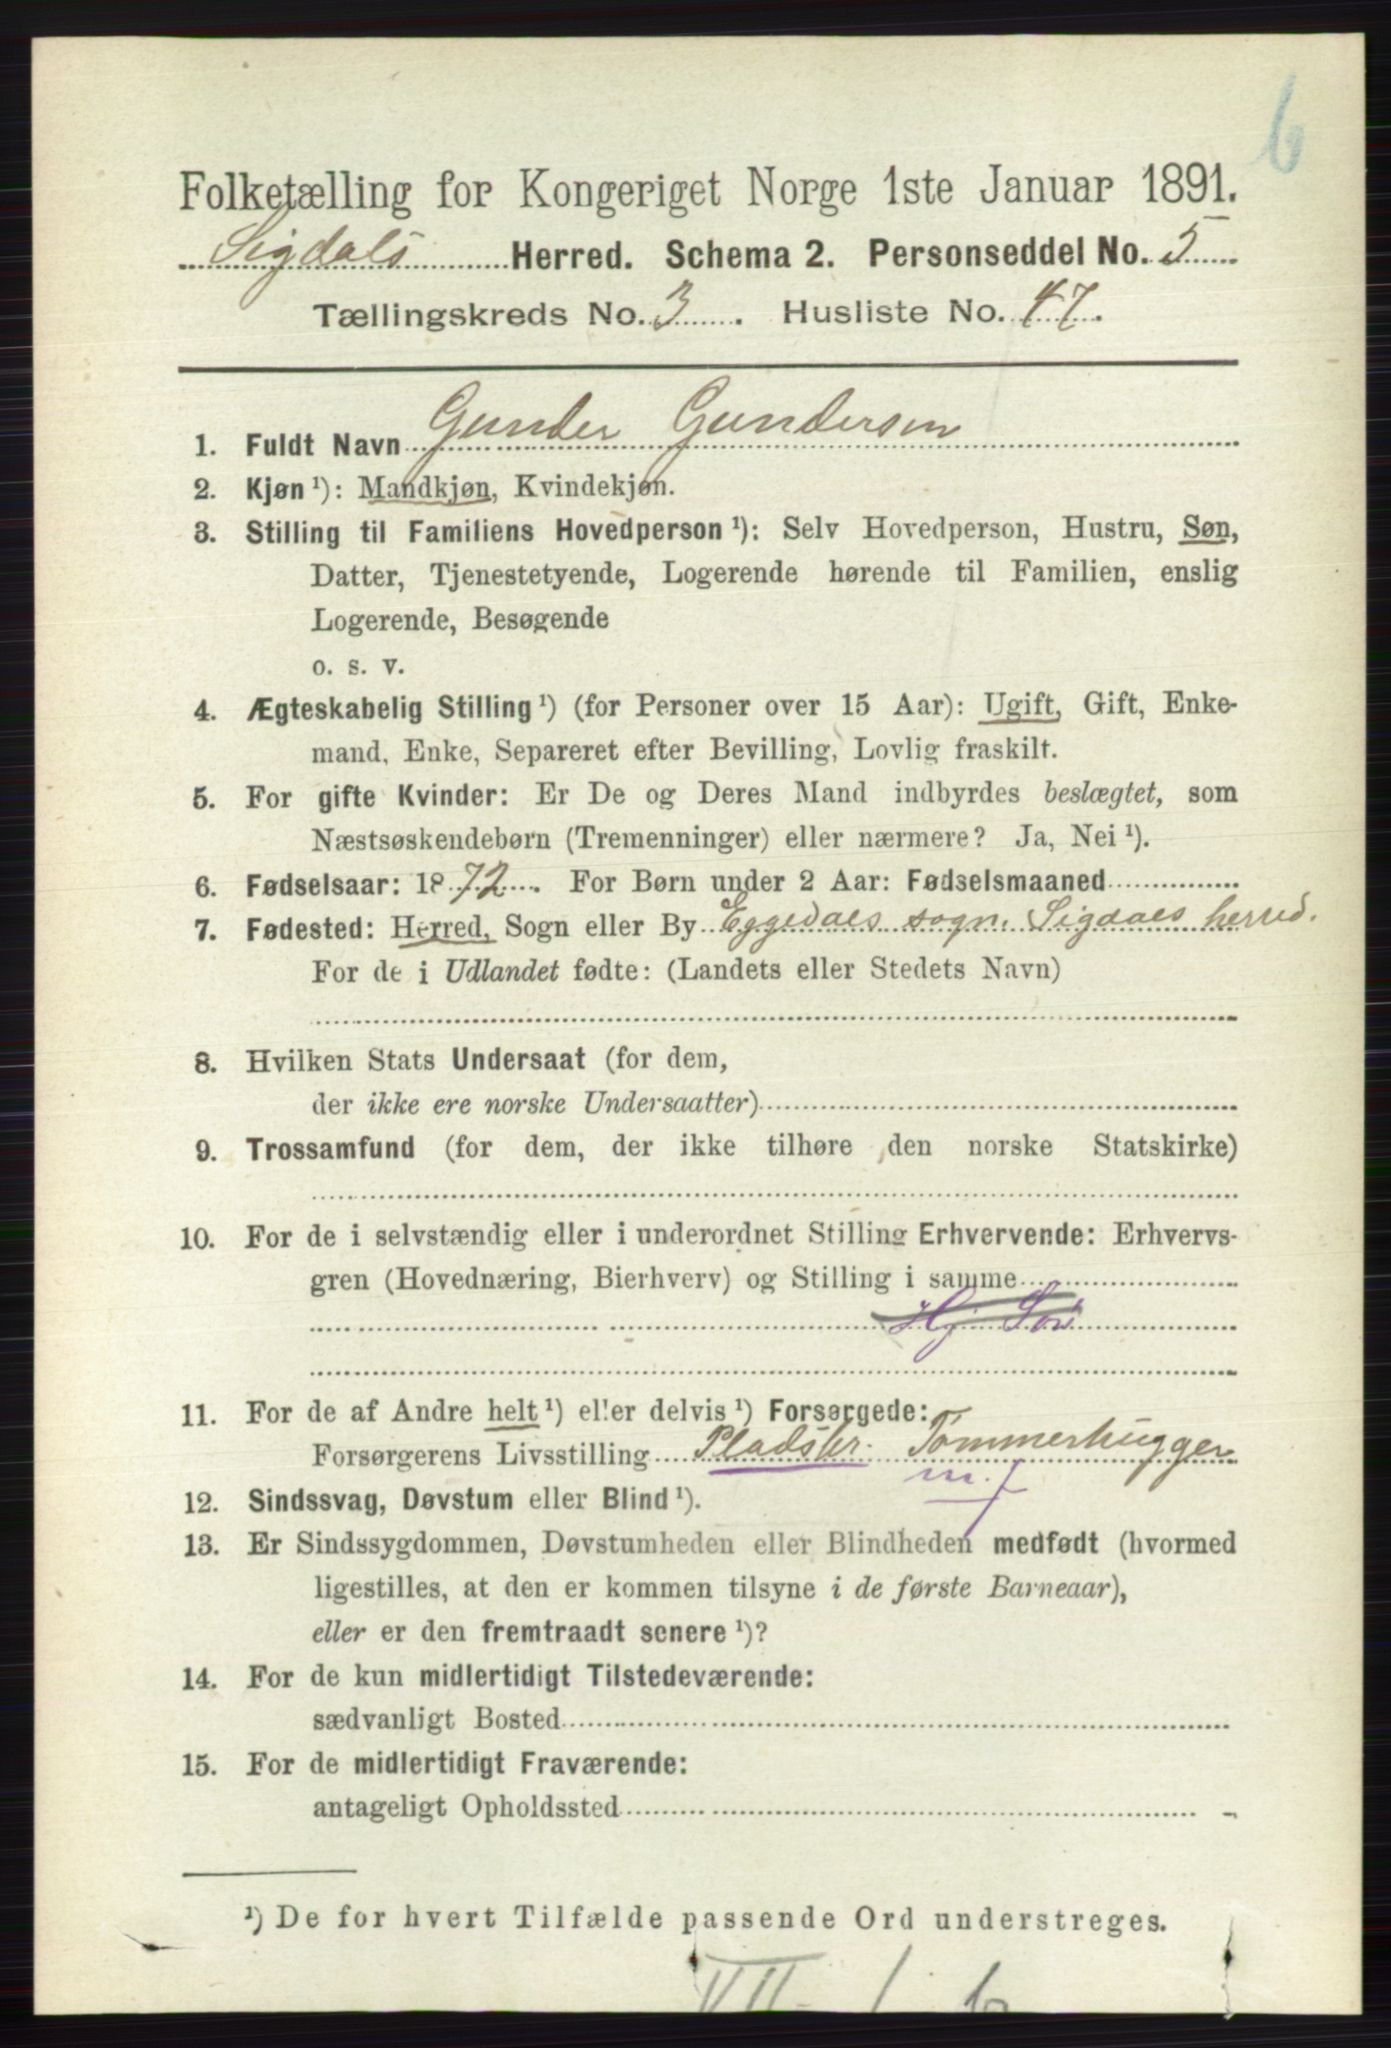 6
Folketælling for Kongeriget Norge 1ste Januar 1891.
Sigdals Herred. Schema 2. Personseddel No. 5
Tællingskreds No. 3. Husliste No. 47.
1. Fuldt Navn Gunder Gundersen
2. Kjøn ¹): Mandkjøn, Kvindekjøn.
3. Stilling til Familiens Hovedperson ¹): Selv Hovedperson, Hustru, Søn,
Datter, Tjenestetyende, Logerende hørende til Familien, enslig
Logerende, Besøgende
o. s. v.
4. Ægteskabelig Stilling ¹) (for Personer over 15 Aar): Ugift, Gift, Enke-
mand, Enke, Separeret efter Bevilling, Lovlig fraskilt.
5. For gifte Kvinder: Er De og Deres Mand indbyrdes beslægtet, som
Næstsøskendebørn (Tremenninger) eller nærmere? Ja, Nei ¹).
6. Fødselsaar: 1872. For Børn under 2 Aar: Fødselsmaaned
7. Fødested: Herred, Sogn eller By Eggedals sogn. Sigdals herred.
For de i Udlandet fødte: (Landets eller Stedets Navn)
8. Hvilken Stats Undersaat (for dem,
der ikke ere norske Undersaatter)
9. Trossamfund (for dem, der ikke tilhøre den norske Statskirke)
10. For de i selvstændig eller i underordnet Stilling Erhvervende: Erhvervs-
gren (Hovednæring, Bierhverv) og Stilling i samme
Hj. Søn
11. For de af Andre helt ¹) eller delvis ¹) Forsørgede:
Forsørgerens Livsstilling Pladsbr. Tømmerhugger
m. f
12. Sindssvag, Døvstum eller Blind ¹).
13. Er Sindssygdommen, Døvstumheden eller Blindheden medfødt (hvormed
ligestilles, at den er kommen tilsyne i de første Barneaar),
eller er den fremtraadt senere ¹)?
14. For de kun midlertidigt Tilstedeværende:
sædvanligt Bosted
15. For de midlertidigt Fraværende:
antageligt Opholdssted
¹) De for hvert Tilfælde passende Ord understreges.